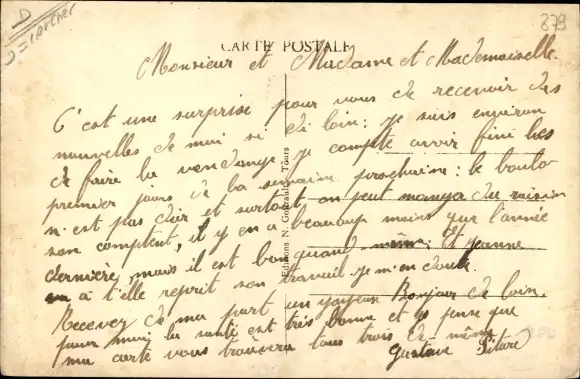 D
879
CARTE POSTALE
Monsieur et Madame et Mademoiselle
C'est une surprise pour vous de recevoir des
nouvelles de moi si de loin: je suis environ
de faire la vendange, je compte avoir fini les
premier jours de la semaine prochaine: le boulo
n'est pas dur et surtout on peut manger du raisin
son comptent, il y en a beaucoup moins que l'année
dernière, mais il est bon quand même: Et Jeanne
a t'elle reprit son travail je m'en doute.
Recevez de ma part un joyeux Bonjour de loin.
pour moi la santé est très bonne et je pense que
ma carte vous trouvera tous trois de même
Gustave
Editions N. Tours